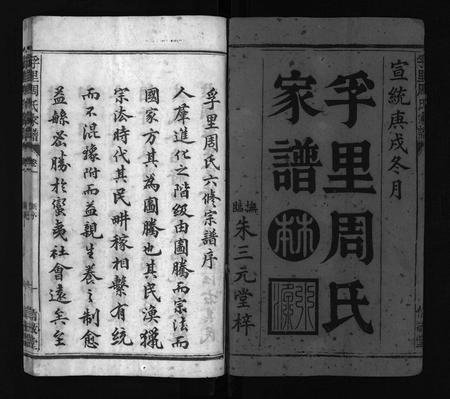 宣統庚戌冬月
孚里周氏
家譜
林
撫臨朱三元堂梓
孚里周氏六修宗譜序
人羣進化之階級由圖騰而宗法而
國家方其為圖騰也其民漁獵
宗法時代其民耕稼相繫有統
而不混豫附而益親生養之制愈
益緜密勝於蠻夷社會遠矣至
孚里周氏家譜